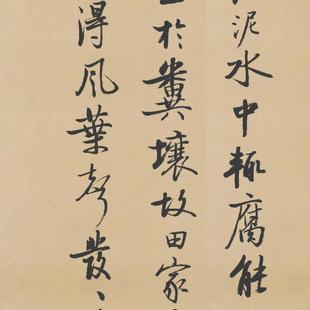 泥水中輒腐能
於糞壤故田家
得風葉聲發